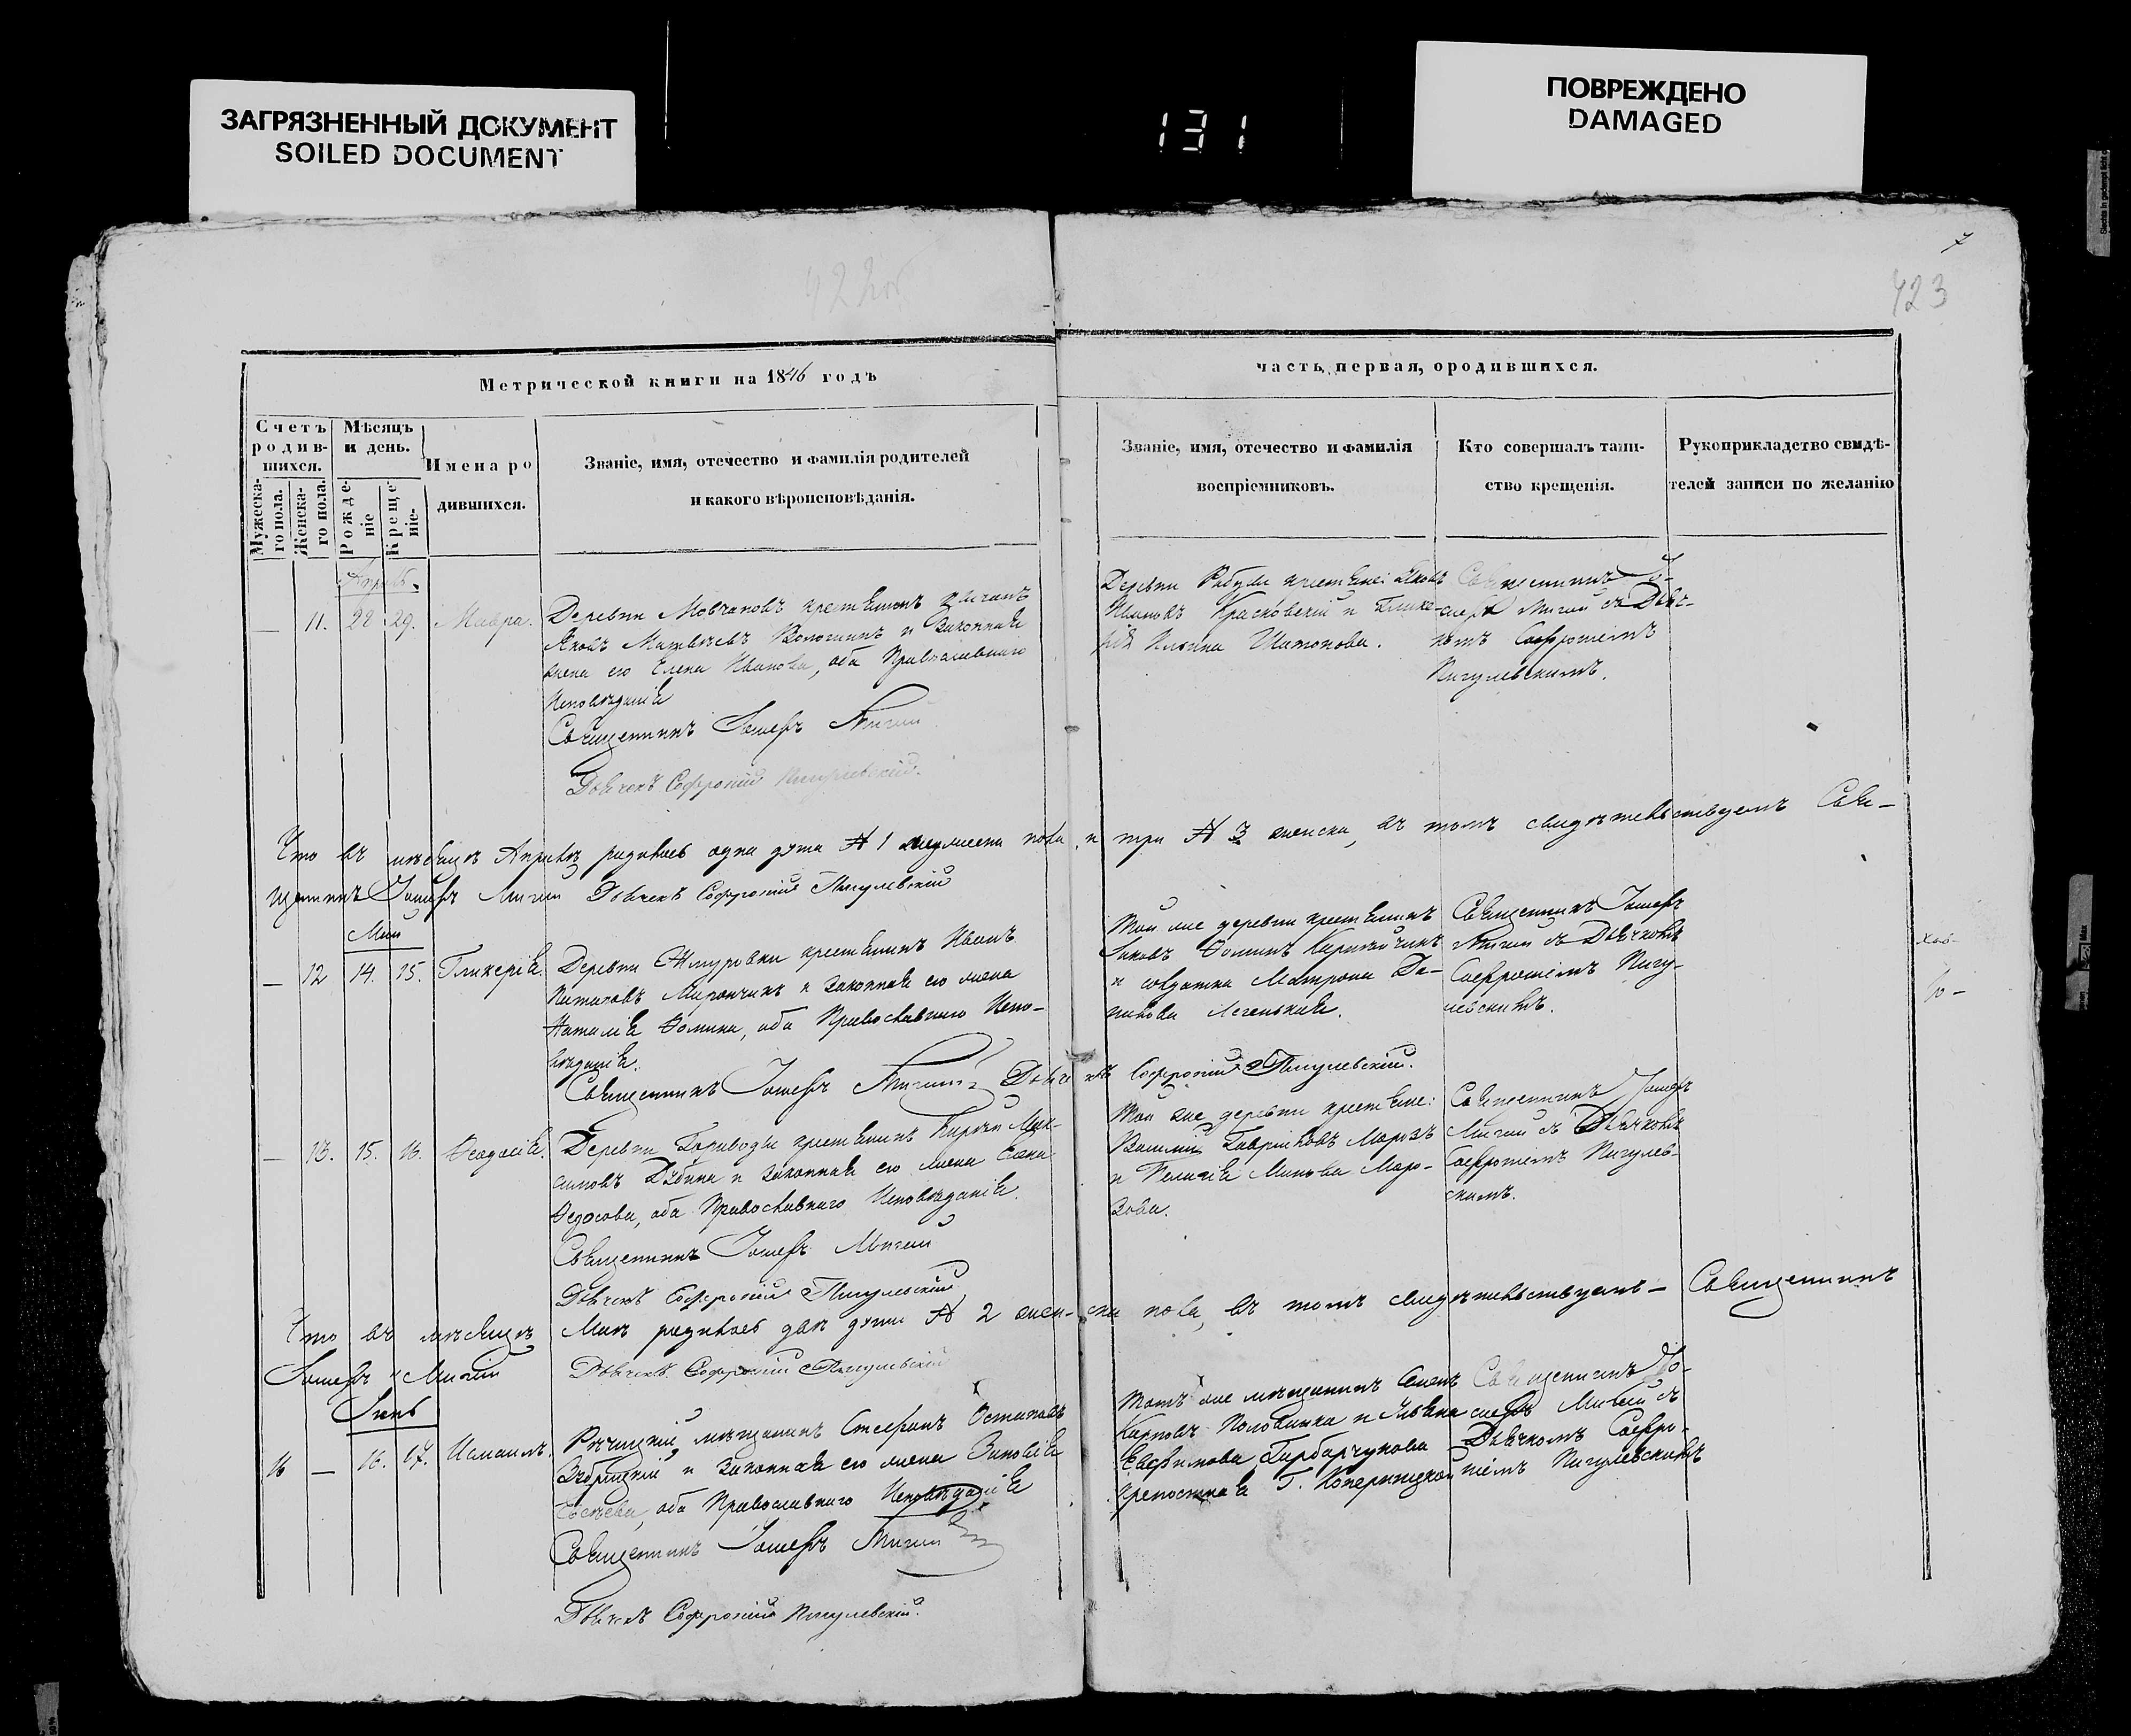 ЗАГРЯЗНЕННЫЙ ДОКУМЕНТ
SOILED DOCUMENT
131
ПОВРЕЖДЕНО
DAMAGED
7
423
Метрической книги на 1846 годъ
часть первая, ородившихся.
Счетъ родившихся.
Мужескаго пола.
Женскаго пола.
Мѣсяцъ и день.
Рожденіе
Крещеніе
Имена родившихся.
Званіе, имя, отечество и фамилія родителей
и какого вѣроисповѣданія.
Званіе, имя, отечество и фамилія
воспріемниковъ.
Кто совершалъ таин-
ство крещенія.
Рукоприкладство свидѣ-
телей записи по желанію
Апрѣль.
— 11. 28 29. Мавра.
Деревни Мовчановъ крестьянинъ
Яковъ Матвѣевъ Вологинъ и законная
жена его Елена Иванова, оба Православнаго
Исповѣданія
Священникъ Іосифъ Мигай
Дьячекъ Софроній Пигулевскій.
Ивановъ Красковскій и Глике-
рія Ильина Шатонова.
Священникъ Іо-
сифъ Мигай съ Дьяч-
комъ Софроніемъ
Пигулевскимъ.
Что въ мѣсяцѣ Апрѣлѣ родилось одна дѣта № 1 мужеска пола, и три № 3 женска, въ томъ свидѣтельствуемъ Свя-
щенникъ Іосифъ Мигай Дьячекъ Софроній Пигулевскій
Май
— 12 14. 15. Гликерія.
Деревни Жмуровки крестьянинъ Иванъ
Потаповъ Мирончикъ и законная его жена
Наталія Фомина, оба Православнаго Испо-
вѣданія.
Священникъ Іосифъ Мигай Дьячекъ Софроній Пигулевскій.
Той же деревни крестьянинъ
Яковъ Фоминъ
и солдатка Матрона Да-
нилова Легенькая.
Священникъ Іосифъ
Мигай съ Дьячкомъ
Софроніемъ Пигу-
левскимъ.
— 13. 15. 16. Феодосія.
Деревни Гориводы крестьянинъ Кирилъ Мак-
симовъ Дубина и законная его жена
Федосова, оба Православнаго Исповѣданія.
Священникъ Іосифъ Мигай
Дьячекъ Софроній Пигулевскій
Той же деревни крестьяне:
Василій Гавриловъ Морозъ
и Пелагія Минова Моро-
зова.
Священникъ Іосифъ
Мигай съ Дьячкомъ
Софроніемъ Пигулев-
скимъ.
Что въ мѣсяцѣ Маѣ родилось двѣ дѣти № 2 женска пола, въ томъ свидѣтельствуемъ — Священникъ
Іосифъ Мигай Дьячекъ Софроній Пигулевскій
Іюнь
16 — 16. 17. Исмаилъ.
Рѣчицкій мѣщанинъ Стефанъ Остаповъ
и законная его жена Зиновія
оба Православнаго Исповѣданія
Священникъ Іосифъ Мигай
Дьячекъ Софроній Пигулевскій.
Тотъ же мѣщанинъ Семенъ
Карповъ Половинка и Ульяна
Евфимова Гарбарчукова
крепостная Г.
Священникъ Іо-
сифъ Мигай съ
Дьячкомъ Софро-
ніемъ Пигулевскимъ